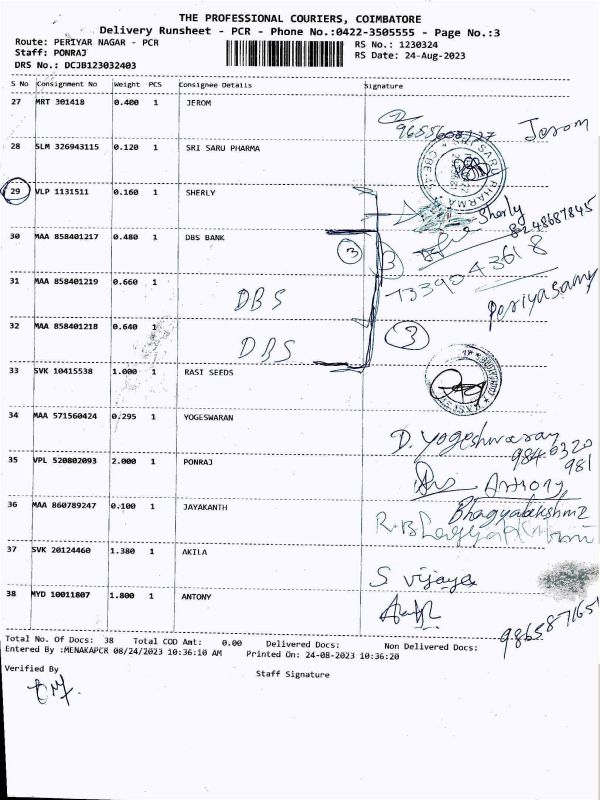 THE PROFESSIONAL COURIERS, COIMBATORE
Delivery Runsheet - PCR - Phone No.:0422-3505555 - Page No.:3
Route: PERIYAR NAGAR - PCR RS No.: 1230324
Staff: PONRAJ RS Date: 24-Aug-2023
DRS No.: DCJB123032403
S No Consignment No Weight PCS Consignee Details Signature
27 MRT 301418 0.400 1 JEROM
Jerom
28 SLM 326943115 0.120 1 SRI SARU PHARMA
29 VLP 1131511 0.160 1 SHERLY
Sherly
8248687845
30 MAA 858401217 0.480 1 DBS BANK
3 3
7339043618
31 MAA 858401219 0.660 1
DBS
Periyasamy
32 MAA 858401218 0.640 1
DBS 3
33 SVK 10415538 1.000 1 RASI SEEDS
34 MAA 571560424 0.295 1 YOGESWARAN
D. Yogeshwaran
9840320
981
35 VPL 520802093 2.000 1 PONRAJ
Antony
36 MAA 860789247 0.100 1 JAYAKANTH
Bhagyalakshmi
37 SVK 20124460 1.380 1 AKILA
S vijaya
38 MYD 10011807 1.800 1 ANTONY
986587165
Total No. Of Docs: 38 Total COD Amt: 0.00 Delivered Docs: Non Delivered Docs:
Entered By :MENAKAPCR 08/24/2023 10:36:10 AM Printed On: 24-08-2023 10:36:20
Verified By Staff Signature